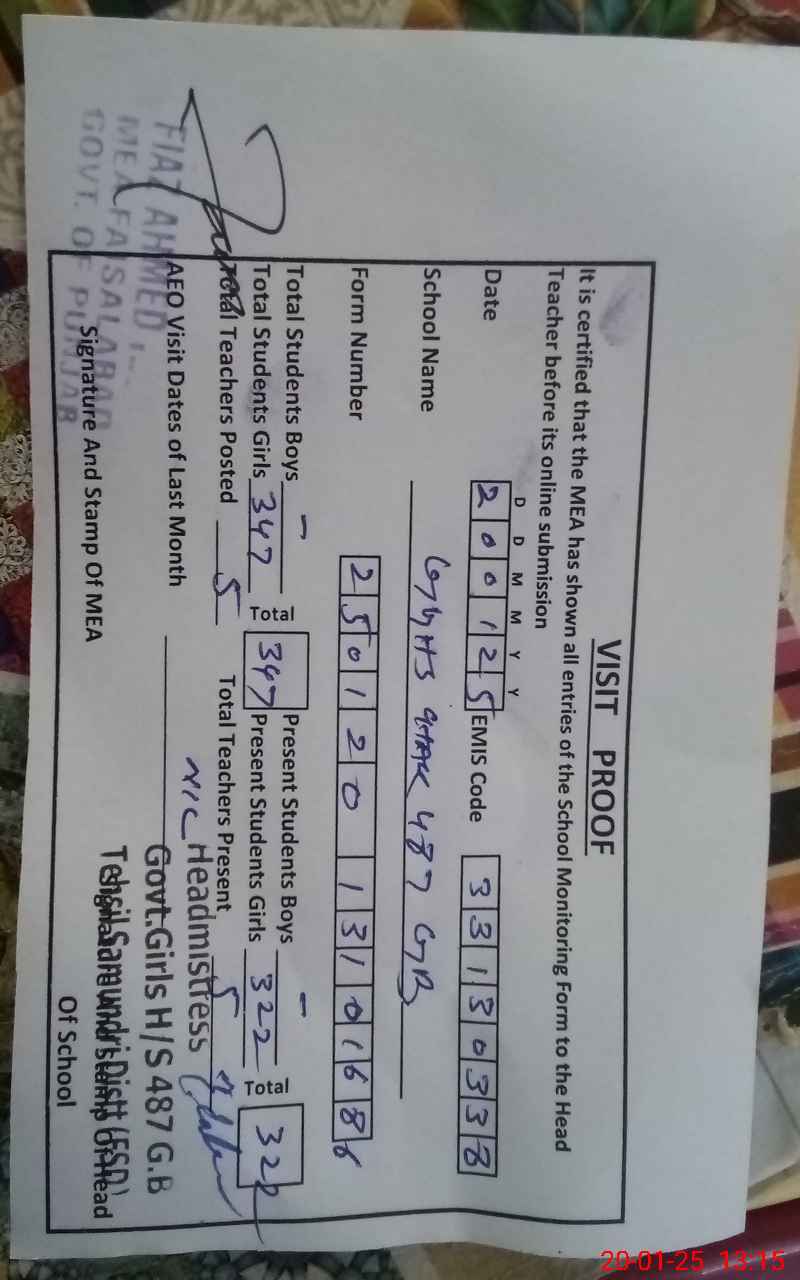 VISIT PROOF
It is certified that the MEA has shown all entries of the School Monitoring Form to the Head
Teacher before its online submission
D D M M Y Y
Date 2 0 0 1 2 5 EMIS Code 3 3 1 3 0 3 3 8
School Name GGHS 487 GB
Form Number 2 5 0 1 2 0 1 3 1 0 1 6 8 6
Total Students Boys - Present Students Boys -
Total Students Girls 347 Total 347 Present Students Girls 322 Total 322
Total Teachers Posted 5 Total Teachers Present 5
AEO Visit Dates of Last Month NIL
FIAZ AHMED
MEA FAISALABAD
GOVT. OF PUNJAB
Signature And Stamp Of MEA
Headmistress
Govt.Girls H/S 487 G.B
Tehsil Samundri Distt (FSD)
Signature And Stamp Of Head
Of School
20-01-25 13:15